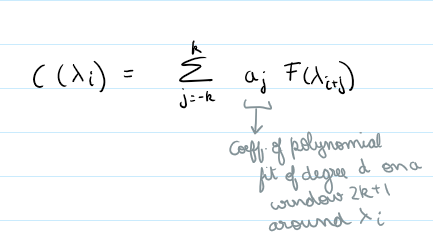 C(λᵢ) = Σ_{j=-k}^{k} a_j F(λ_{i+j})
Coeff. of polynomial
fit of degree d on a
window 2k+1
around λᵢ